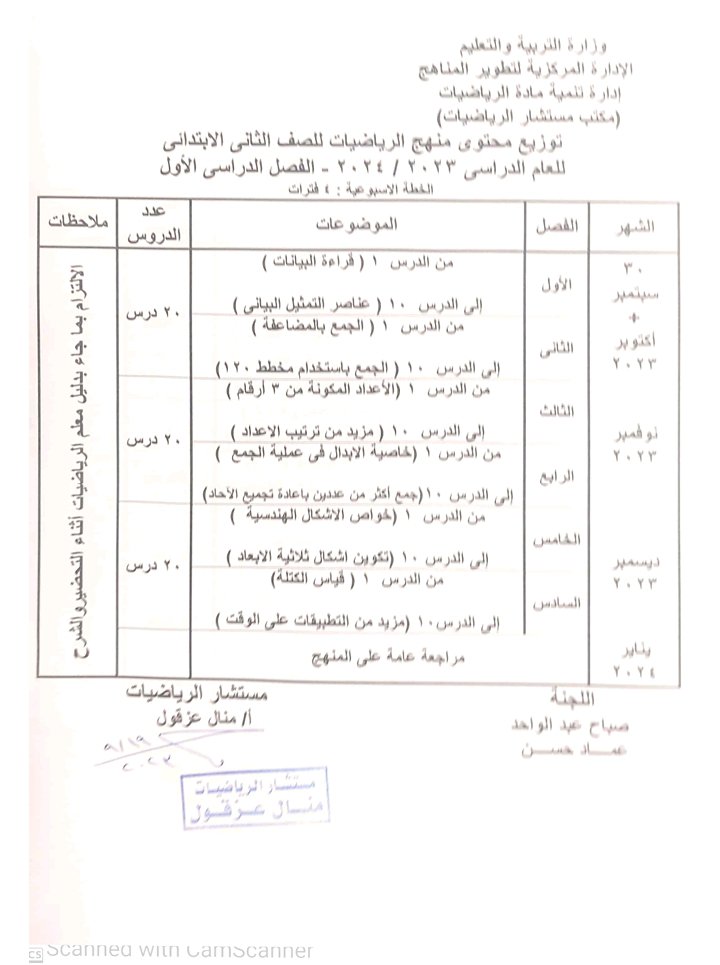 وزارة التربية والتعليم
الإدارة المركزية لتطوير المناهج
إدارة تنمية مادة الرياضيات
(مكتب مستشار الرياضيات)
توزيع محتوى منهج الرياضيات للصف الثانى الابتدائى
للعام الدراسى ٢٠٢٣ / ٢٠٢٤ - الفصل الدراسى الأول
الخطة الاسبوعية : ٤ فترات
الشهر الفصل الموضوعات عدد الدروس ملاحظات
٣٠ سبتمبر + أكتوبر ٢٠٢٣
الأول
من الدرس ١ ( قراءة البيانات )
إلى الدرس ١٠ ( عناصر التمثيل البيانى )
٢٠ درس
الثانى
من الدرس ١ ( الجمع بالمضاعفة )
إلى الدرس ١٠ ( الجمع باستخدام مخطط ١٢٠)
نوفمبر ٢٠٢٣
الثالث
من الدرس ١ (الأعداد المكونة من ٣ أرقام )
إلى الدرس ١٠ ( مزيد من ترتيب الاعداد )
٢٠ درس
الرابع
من الدرس ١ (خاصية الابدال فى عملية الجمع )
إلى الدرس ١٠ (جمع أكثر من عددين باعادة تجميع الآحاد)
ديسمبر ٢٠٢٣
الخامس
من الدرس ١ (خواص الاشكال الهندسية )
إلى الدرس ١٠ (تكوين اشكال ثلاثية الابعاد )
٢٠ درس
السادس
من الدرس ١ ( قياس الكتلة)
إلى الدرس ١٠ (مزيد من التطبيقات على الوقت )
يناير ٢٠٢٤
مراجعة عامة على المنهج
الالتزام بما جاء بدليل معلم الرياضيات أثناء التحضير والشرح
اللجنة
صباح عبد الواحد
عماد حسن
مستشار الرياضيات
أ/ منال عزقول
٩/١٩
٢٠٢٣
مستشار الرياضيات
منال عزقول
CS Scanned with CamScanner